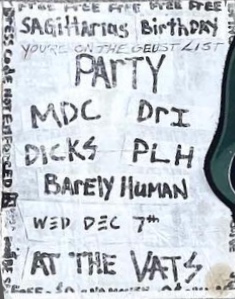 FREE FREE FREE FREE FREE!
SAGITTARIUS BIRTHDAY
YOU'RE ON THE GEUST LIST
PARTY
MDC DRI
DICKS PLH
BARELY HUMAN
WED DEC 7th
AT THE VATS
DRESS CODE NOT ENFORCED